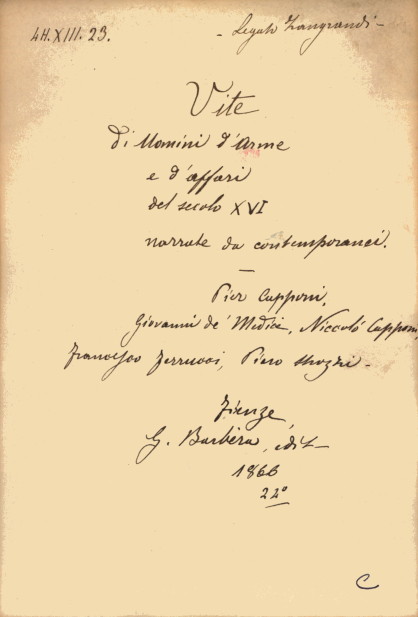 4H.XIII.23.
- Legato Zangrandi -
Vite
di Uomini d'Arme
e d'affari
del secolo XVI
narrate da contemporanei.
—
Pier Capponi,
Giovanni de' Medici, Niccolò Capponi,
Francesco Ferrucci, Piero Strozzi -
Firenze,
G. Barbèra, edit -
1866
22º
C